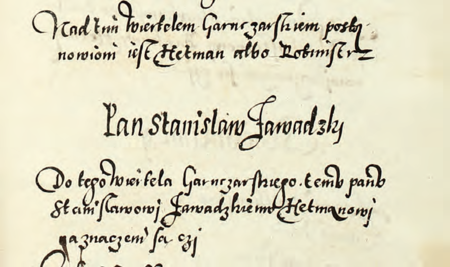 Nad tim wiertelem Garnczarskiem postą-
nowioni iest Hetman albo Rotmistrz
Pan Stanislaw Zawadzki
Do tego wirtela Garnczarskiego. temu panu
Stanislawowi Zawadzkiemu Hetmanowj
naznaczeni są czi